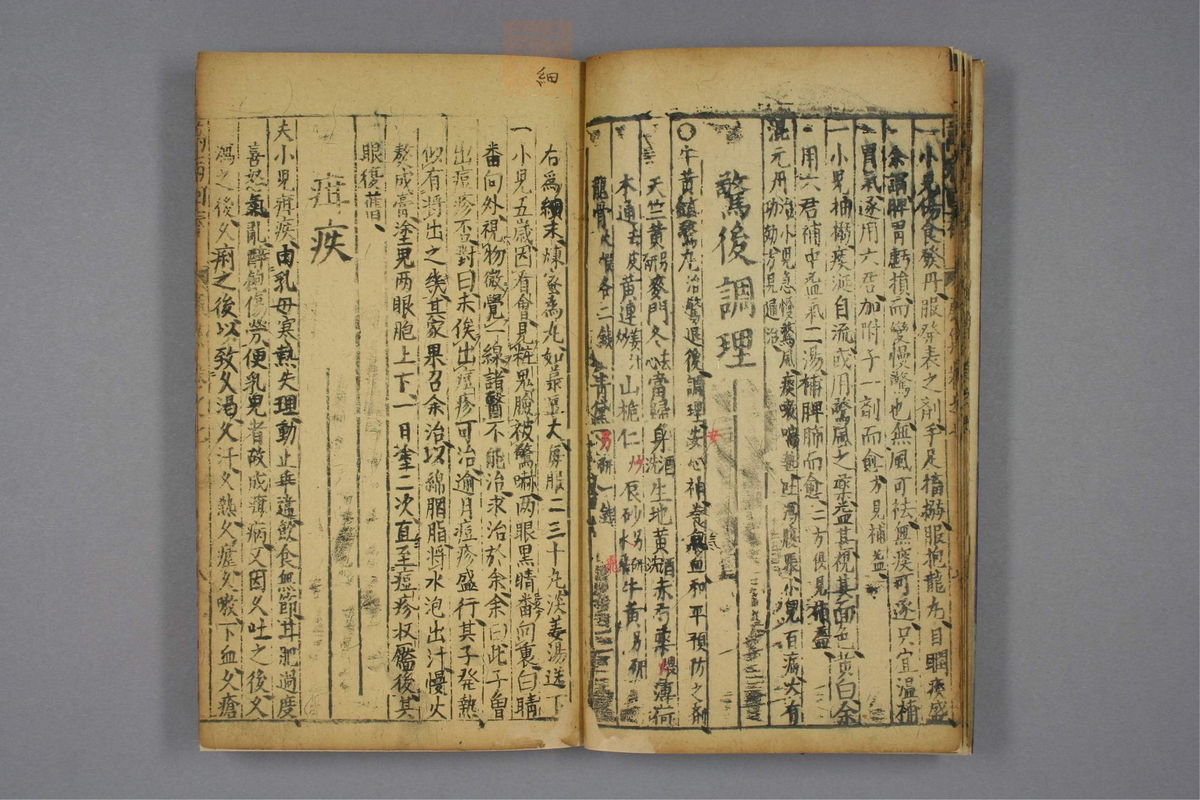 一小兒傷食發丹服發表之劑手足搐搦服抱龍丸目瞤痰盛
余謂脾胃虧損而變慢驚也無風可祛無痰可逐只宜溫補
胃氣遂用六君加附子一劑而愈方見補益
一小兒抽搦痰涎自流或用驚風之藥益甚視其面色黃白余
用六君補中益氣二湯補脾肺而愈二方俱見補益
混元丹治小兒急慢驚風痰嗽喘熱吐瀉腹脹小兒百病大有
功効方見通治
驚後調理
牛黃鎮驚丸治驚退後調理安心神養氣血和平預防之劑
天竺黃另研麥門冬去心當歸身酒洗生地黃酒洗赤芍藥煨薄荷
木通去皮黃連姜汁炒山梔仁炒辰砂另研水飛牛黃另研
龍骨火煆各二錢青黛另研一錢
細
右爲細末煉蜜爲丸如菉豆大每服二三十丸淡姜湯送下
一小兒五歲因有會見粧鬼臉被驚嚇兩眼黑睛番向裏白睛
番向外視物微覺一線諸醫不能治求治於余余曰此子曾
出痘疹否對曰未俟出痘疹可治逾月痘疹盛行其子發熱
似有將出之幾其家果召余治以綿胭脂將水泡出汁慢火
熬成膏塗兒兩眼胞上下一日塗二次直至痘疹收靨後其
眼復舊
疳疾
夫小兒疳疾由乳母寒熱失理動止乖違飲食無節甘肥過度
喜怒氣亂醉飽傷勞便乳兒者故成疳病又因久吐之後久
瀉之後久痢之後以致久渴久汗久熱久瘧久嗽下血久瘡